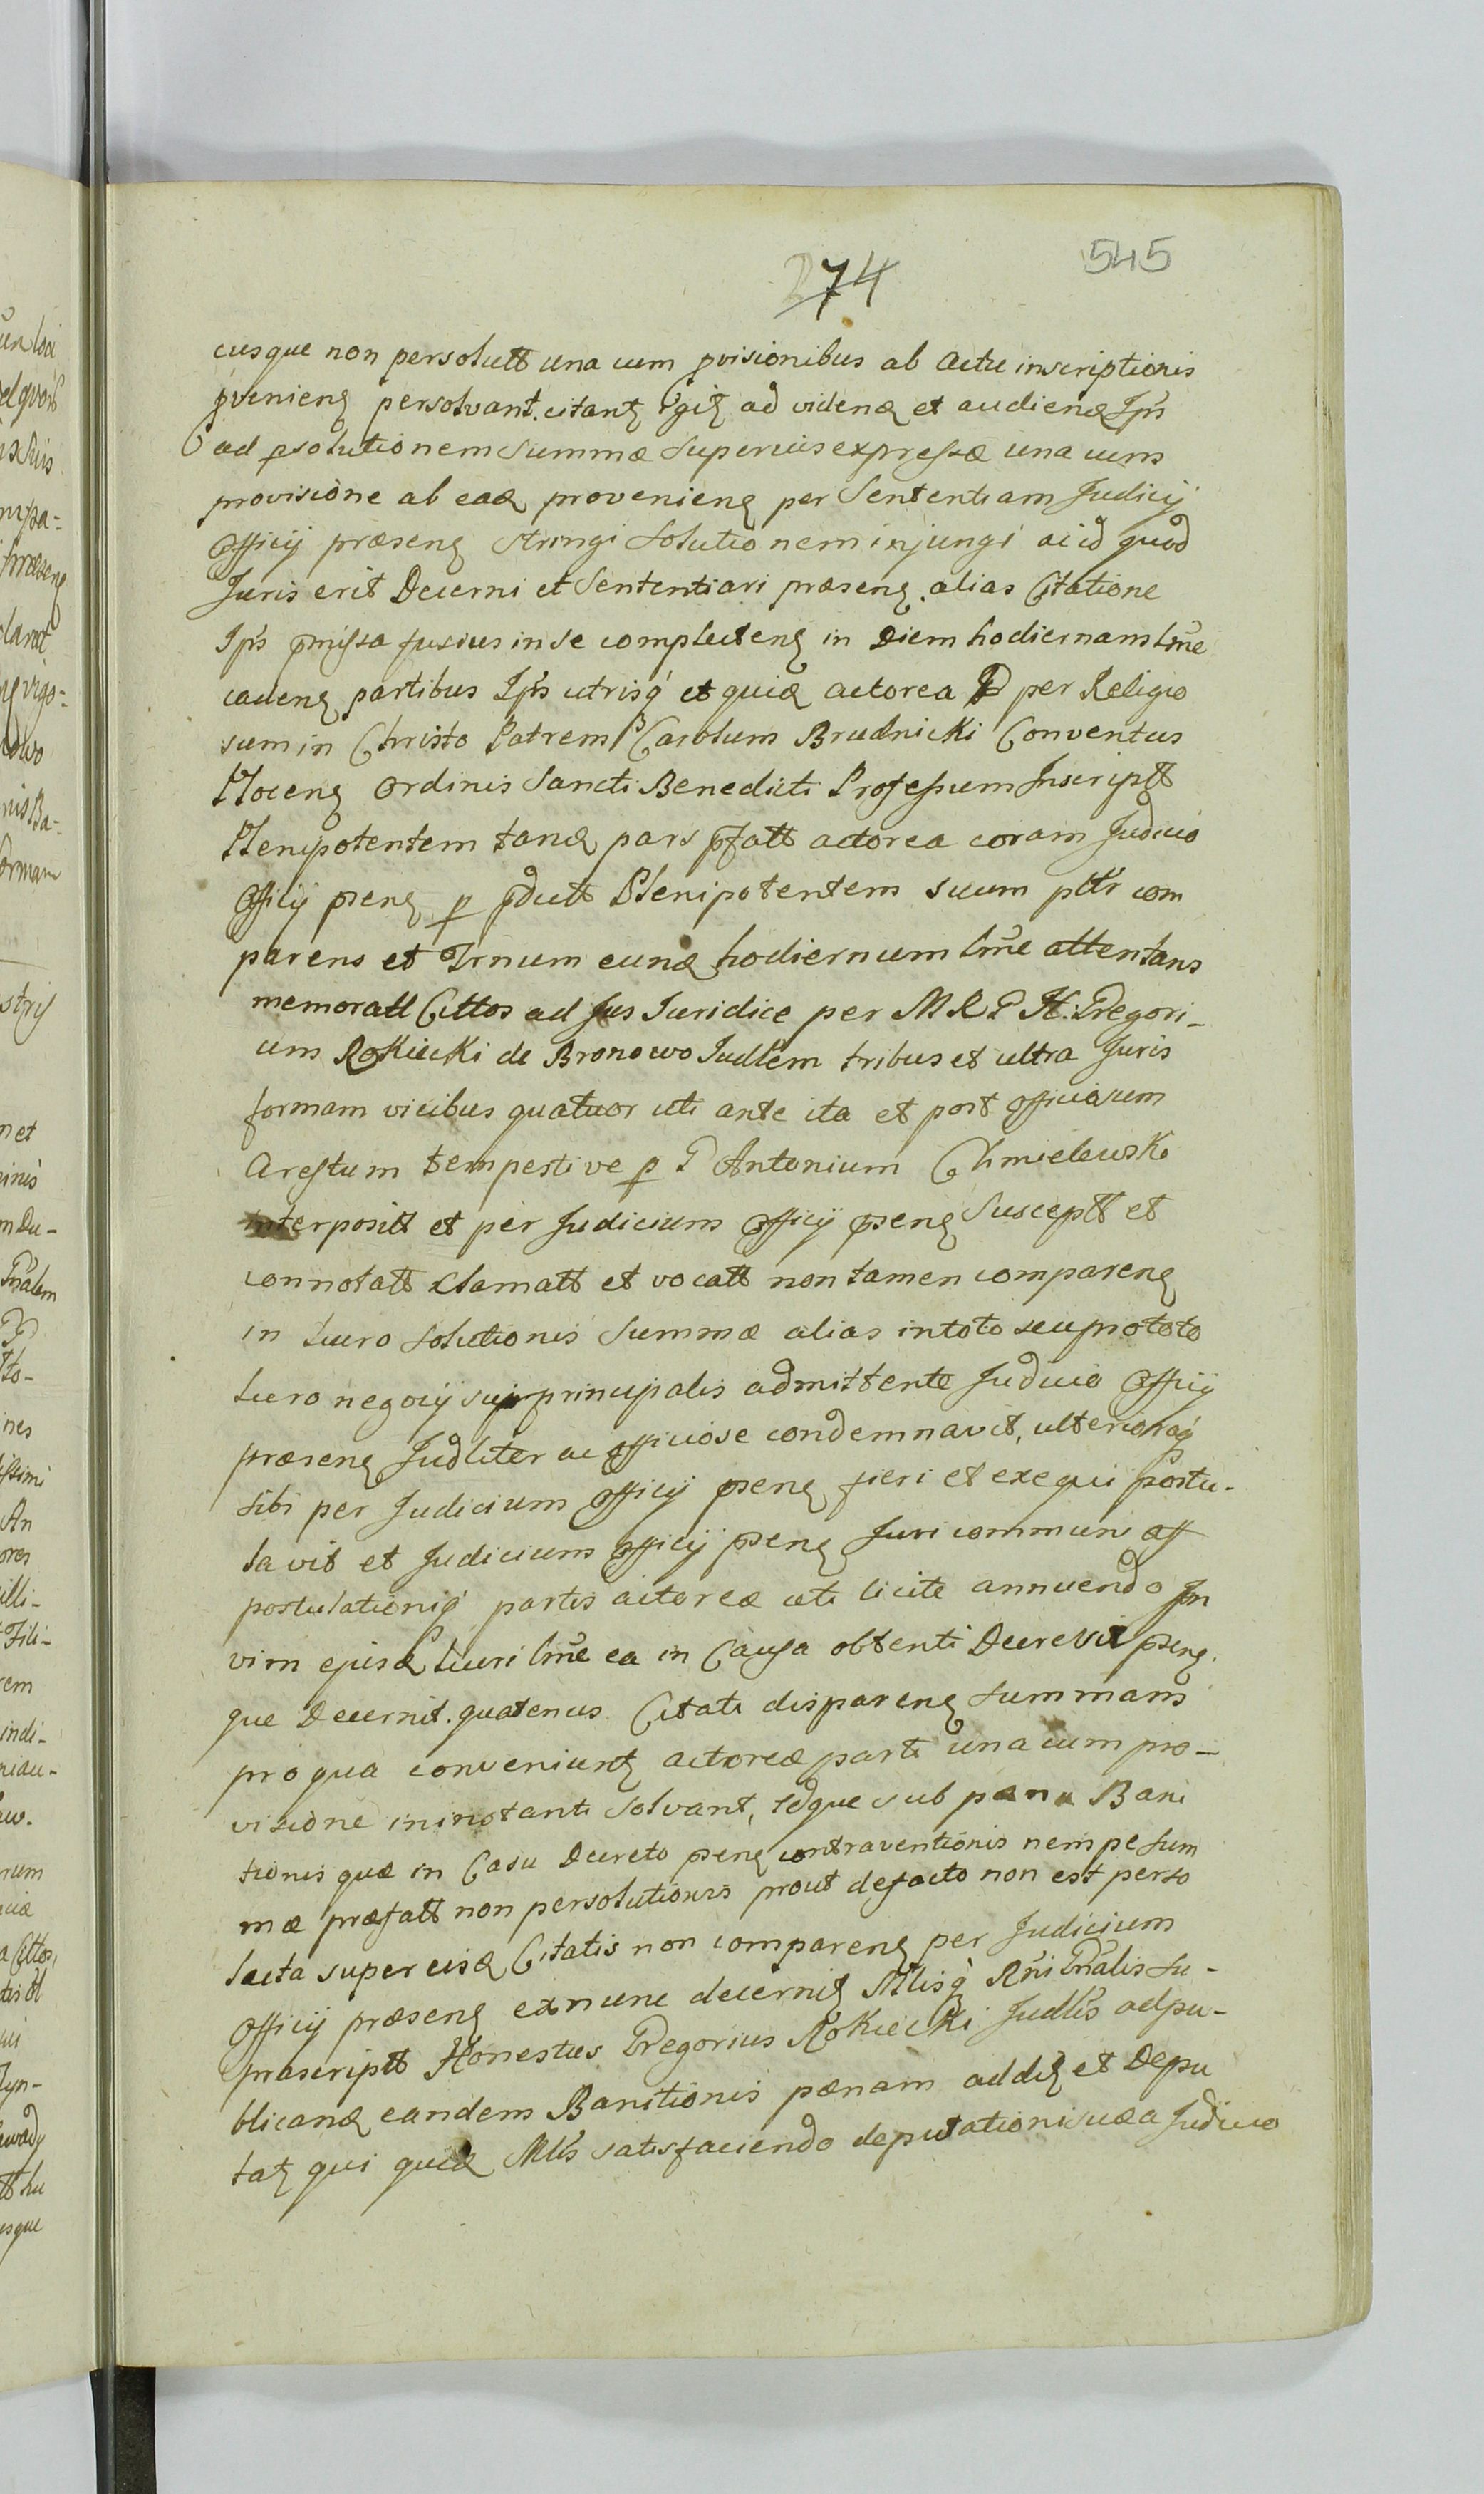 545
274
cusque non persolutt una cum pvisionibus ab actu inscriptionis
pvenien persolvant. citant ad viden et audien Ips
ad psolutionem Summæ Superius expressæ una cum
provisione ab ead provenien per Sententiam Judicij
Officij præsen stringi Solutionem injungi ac id quod
Juris erit Decerni et Sententiari præsen. alias Citatione
Ips pmissa fusius in se complecten in Diem hodiernam lme
caden partibus Ips utrisq et quia actorea P per Religio
sum in Christo Patrem Carolum Brudnicki Conventus
Plocen Ordinis Sancti Benedicti Professum Inscriptt
Plenipotentem tanq pars pfatt actorea coram Judicio
Officij psen p pdutt Plenipotentem suum pltr com
parens et Trnum eund hodiernum lme attentans
memoratt Cittos ad Jus Juridice per M R P H: Gregori-
um Rokiecki de Bronowo Judlem tribus et ultra Juris
formam vicibus quatuor uti ante ita et post officiosum
Arestum tempestive p P Antonium Chmielewski
interposit et per Judicium Officij psen Susceptt et
connotatt clamatt et vocatt non tamen comparen
in lucro Solutionis Summæ alias in toto seu pro toto
lucro negocij sui principalis admittente Judicio Officij
præsen Judliter ac officiose condemnavit, ulterioraq
sibi per Judicium Officij psen fieri et exequi postu-
lavit et Judicium Officij psen Juri communi aff
postulationiq partis actoreæ uti licite annuendo In
vim ejusd lucri lme ea in Causa obtenti Decrevit psen
que Decernit. quatenus Citati disparen Summam
pro qua conveniunt actoreæ parti una cum pro-
visione in instanti Solvant, idque sub pæna Bani
tionis quæ in Casu Decreto psen contraventionis nempe Sum
mæ præfatt non persolutionis prout defacto non est perso
luta super eisd Citatis non comparen per Judicium
Officij præsen exnunc decernit Mlisq Rni Gnalis su-
prascriptt Honestus Gregorius Rokiecki Judlis ad pu-
blicand eandem Banitionis pænam addit et Depu
tat qui quid Mlis satisfaciendo deputationi suæ a Judicio